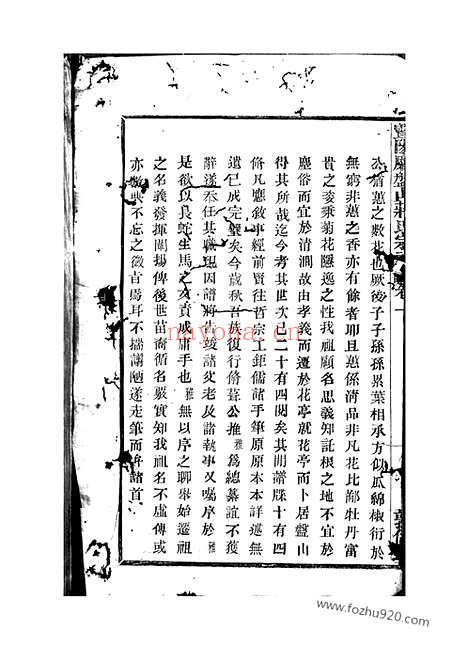 蕙之數花也厥後子子孫孫累葉相承方似瓜綿椒衍於
無窮非蕙之香亦有餘者耶且蕙係清品非凡花比鄙牡丹富
貴之姿乘菊花隱逸之性我祖顧名思義知託根之地不宜於
塵俗而宜於清澗故由孝義而遷於花亭就花亭而卜居盤山
得其所哉迄今考其世次已二十有四閱矣其間譜牒十有四
脩凡應敘事經前賢往哲宗工鉅儒諸手筆原原本本詳遞無
遺已成完璧矣今歲秋吾族復行脩葺公推雅為總纂誼不獲
辭遂忝任其職現因譜將告竣諸父老及諸執事又囑序於雅
是欲以長蛇生馬之文責成庸手也雅無以序之聊舉始遷祖
之名義發揮闡揚俾後世苗裔循名嚴實知我祖名不虛傳或
亦數典不忘之徵旨焉耳不揣譾陋遂走筆而弁諸首
卷一
nayona.com
www.fozhu920.com